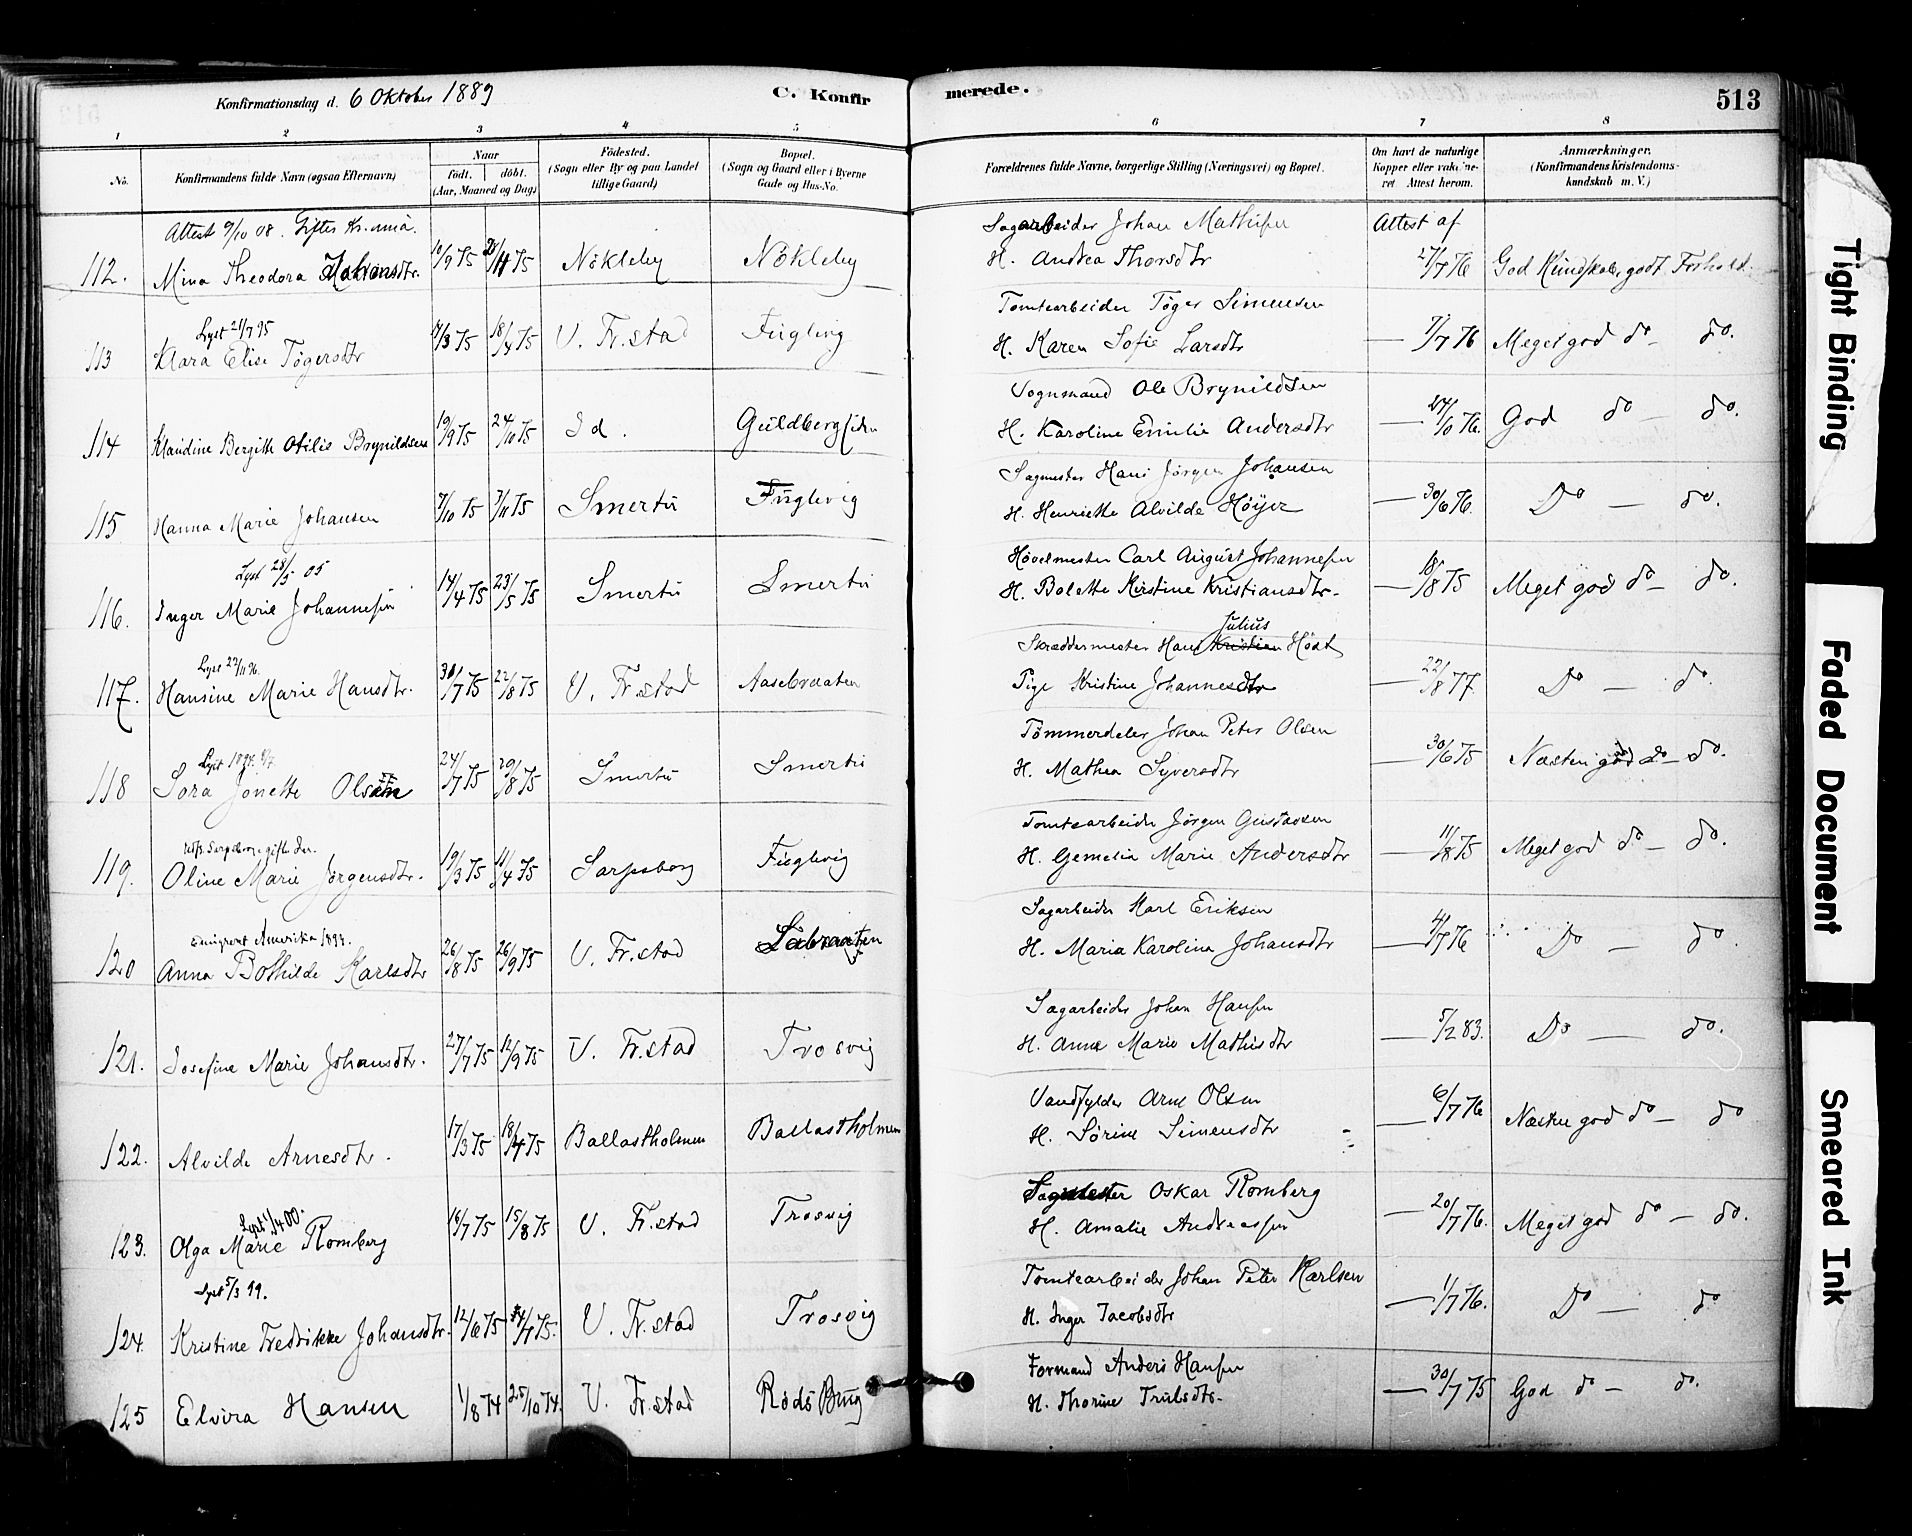 Konfirmationsdag d. 6 Oktober 1889
C. Konfir
merede.
513
1 2 3 4 5 6 7 8
No.
Konfirmandens fulde Navn (ogsaa Efternavn)
Naar
födt. döbt.
(Aar, Maaned og Dag)
Födested.
(Sogn eller By og paa Landet
tillige Gaard)
Bopæl.
(Sogn og Gaard eller i Byerne
Gade og Hus-No.
Forældrenes fulde Navne, borgerlige Stilling (Næringsvei) og Bopæl.
Om havt de naturlige
Kopper eller vakcine-
ret. Attest herom.
Anmærkninger.
(Konfirmandens Kristendoms-
kundskab m. V.)
Attest 9/10 08. Giftes Kr.ania.
Sagarbeider Johan Mathisen Attest af
112. Mina Theodora Johansdtr. 10/9 75 /11 75 Nökleby Nökleby H. Andrea Thorsdtr 27/7 76 God Kundskab, godt Forhold.
Lyst 21/7 95
Tomtearbeider Töger Simensen
113 Klara Elise Tögersdtr /3 75 18/4 75 V. Fr.stad Fuglevig H. Karen Sofie Larsdtr — 7/7 76 Meget god do — do.
Vognmand Ole Brynildsen
114 Klaudine Bergitte Otilie Brynildsen 19/9 75 24/10 75 Id. Guldbergsiden H. Karoline Emilie Andersdtr — /10 76. God do — do.
Sagmester Hans Jörgen Johansen
115 Hanna Marie Johansen 7/10 75 7/11 75 Smertu Fuglevig H. Henriette Alvilde Höyer — 30/6 76. Do — do.
Lyst 28/5 05
Hövelmester Carl August Johannesen
116. Inger Marie Johannesen 14/4 75 23/5 75 Smertu Smertu H. Bolette Kirstine Kristiansdtr. — 18/8 75 Meget god do — do.
Julius
Lyst 22/11 96.
Skræddermester Hans Kristian Höst
117. Hansine Marie Hansdtr. 30/7 75 22/8 75 V. Fr.stad Aasebraaten Pige Kristine Johannesdtr — 22/8 77. Do — do.
Tömmerdeler Johan Peter Olsen
118 Sora Jonette Olsen 24/7 75 29/8 75 Smertu Smertu H. Mathea Syversdtr — 30/6 75 Næsten god do — do.
Tomtearbeider Jörgen Gustavsen
119. Oline Marie Jörgensdtr. 19/3 75 11/4 75 Sarpsborg Fuglevig H. Gemelia Marie Andersdtr — 11/8 75 Meget god do — do.
Emigreret Amerika 1893.
Sagarbeider Karl Eriksen
120 Anna Bothilde Karlsdtr 26/8 75 26/9 75 V. Fr.stad H. Maria Karolina Johansdtr — 4/7 76 Do — do.
Sagarbeider Johan Hansen
121. Josefine Marie Johansdtr. 27/7 75 12/9 75 V. Fr.stad Trosvig H. Anna Marie Mathisdtr — 5/2 83. Do — do.
Vandfylder Arne Olsen
122. Alvilde Arnesdtr. 17/3 75 18/4 75 Ballastholmen Ballastholmen H. Sörine Simensdtr — 6/7 76 Næsten god do — do
Lyst 1/4 00.
Sagmester Oskar Romberg
123. Olga Marie Romberg 16/7 75 15/8 75 V. Fr.stad Trosvig H. Amalie Andreassen — 20/7 76. Meget god do — do.
Lyst 5/3 99.
Tomtearbeider Johan Peter Karlsen
124. Kristine Fredrikke Johansdtr. 12/6 75 /7 75. V. Fr.stad Trosvig H. Inger Jacobsdtr — 1/7 76. Do — do
Formand Anders Hansen
125 Elvira Hansen 1/8 74 25/10 74. V. Fr.stad Röds Brug H. Thorine Trulsdtr. — 30/7 75 God do — do.
Tight Binding
Faded Document
Smeared Ink